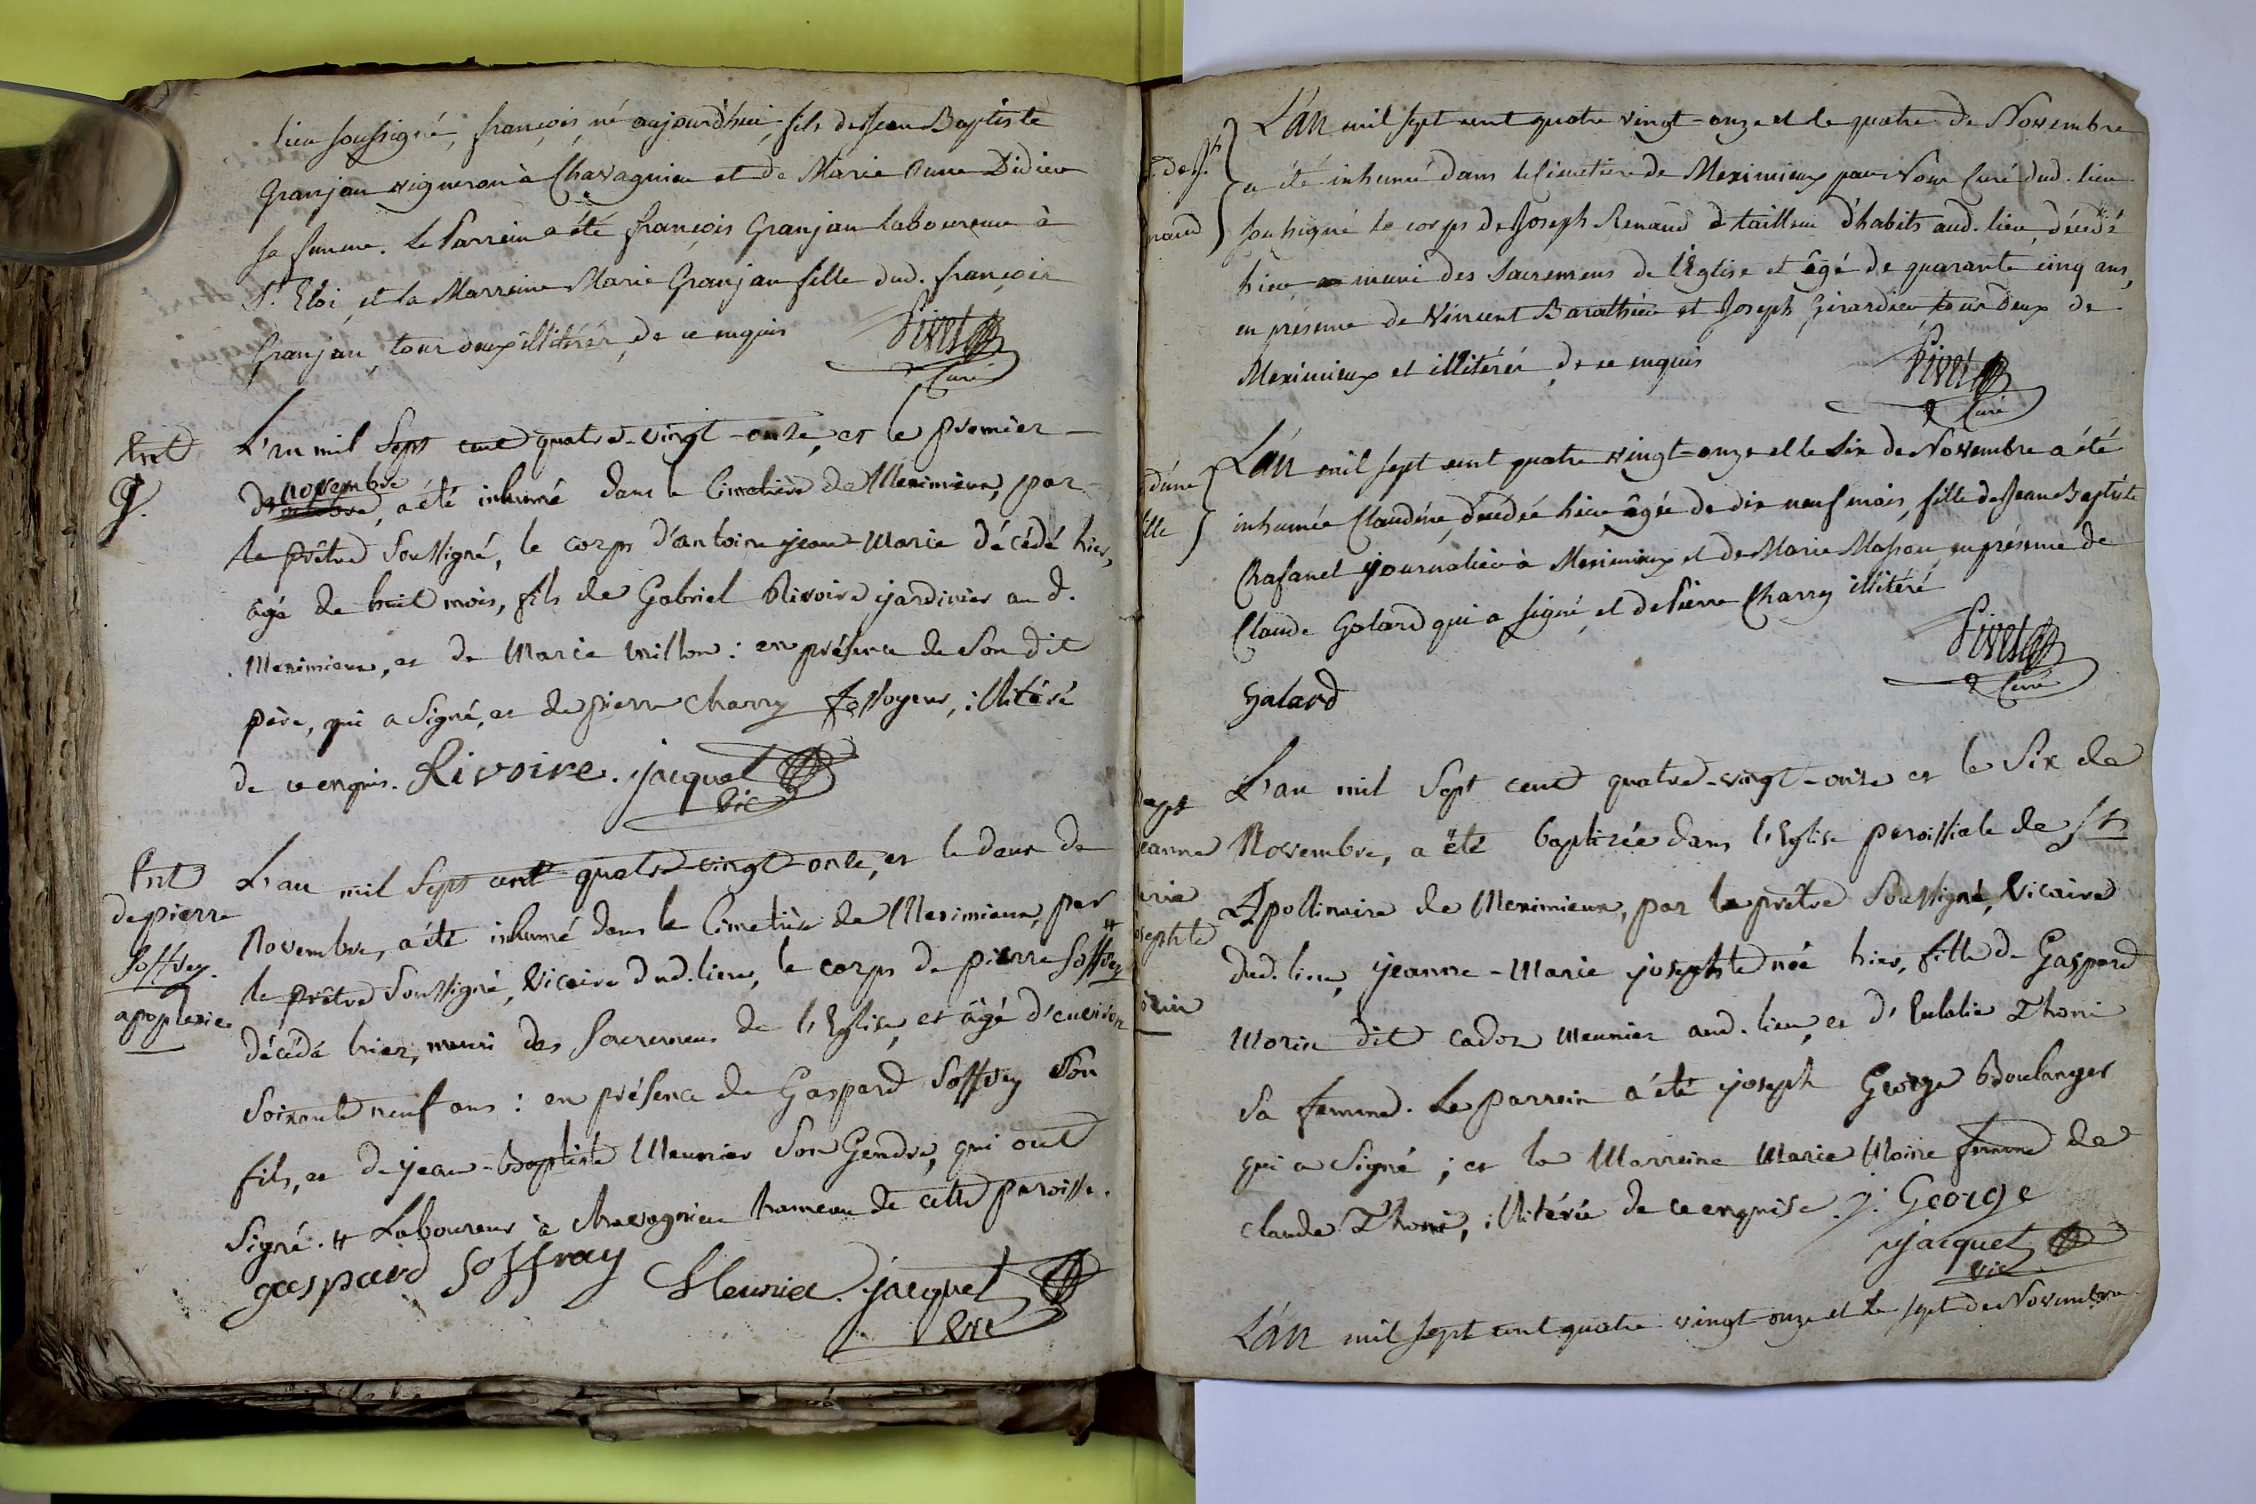 lieu soussigné, françois, né aujourd'hui, fils de Jean Baptiste
Granjan vigneron à Chavagnieu et de Marie Anne Didieu
sa femme. Le Parrein a été françois Granjan laboureur à
St. Eloi, et la Marreine Marie Granjan fille dud. françois
Granjan, tous deux illitérés, de ce enquis
Pivet
Curé
Ent
g.
L'an mil Sept cent quatre-vingt-onze, et le premier
novembre
de octobre, a été inhumé dans le Cimetière de Meximieux, par
le prêtre Soussigné, le corps d'antoine jean-Marie décédé hier,
âgé de huit mois, fils de Gabriel Rivoire jardinier au d.
Meximieux, et de Marie millon : en présence de Son dit
père, qui a Signé, et de pierre charry fossoyeur, illitéré
de ce enquis. Rivoire. jacquet
vic
Ent
de pierre
Soffrey.
apoplexie
L'an mil Sept cent quatre-vingt-onze, et le deux de
Novembre, a été inhumé dans le Cimetière de Meximieux, par
le prêtre Soussigné, Vicaire dud. lieu, le corps de pierre Soffrey #
décédé hier, muni des Sacremens de l'Eglise, et âgé d'environ
Soixante neuf ans : en présence de Gaspard Soffrey Son
fils, et de jean-Baptiste Meunier Son Gendre, qui ont
Signé. # Laboureur à chavagnieu hameau de cette paroisse.
gaspard Soffray Meunier. jacquet
vic
de Jh
naud
L'án mil sept cent quatre vingt-onze et le quatre de Novembre
a été inhumé dans le Cimetière de Meximieux par Nous Curé dud. lieu
soussigné le corps de Joseph Renaud tailleur d'habits aud. lieu, décédé
hier, muni des Sacremens de l'Eglise et âgé de quarante cinq ans,
en présence de Vincent Barathieu et Joseph Girardieu tous deux de
Meximieux et illitérés, de ce enquis
Pivet
Curé
d'une
fille
L'án mil sept cent quatre vingt-onze et le Six de Novembre a été
inhumée Claudine, décédée hier âgée de dix neuf mois, fille de Jean Baptiste
Chafanel journalier à Meximieux et de Marie Masson, en présence de
Claude Galard qui a signé, et de Pierre Charry illitéré
Pivet
Curé
Galard
Bapt
jeanne
marie
josephte
Morin
L'an mil Sept cent quatre-vingt-onze et le Six de
Novembre, a été baptizée dans l'Eglise paroissiale de St
Apollinaire de Meximieux, par le prêtre Soussigné, Vicaire
dud. lieu, jeanne-Marie josephte née hier, fille de Gaspard
Morin dit cador Meunier aud. lieu, et d'Eulalie Thoni
Sa femme. Le parrein a été joseph George Boulanger
qui a Signé ; et la Marreine Marie Moine femme de
claude Thoni, illitérée de ce enquise. j. George
jacquet
vic
L'án mil sept cent quatre vingt-onze et le sept de Novembre